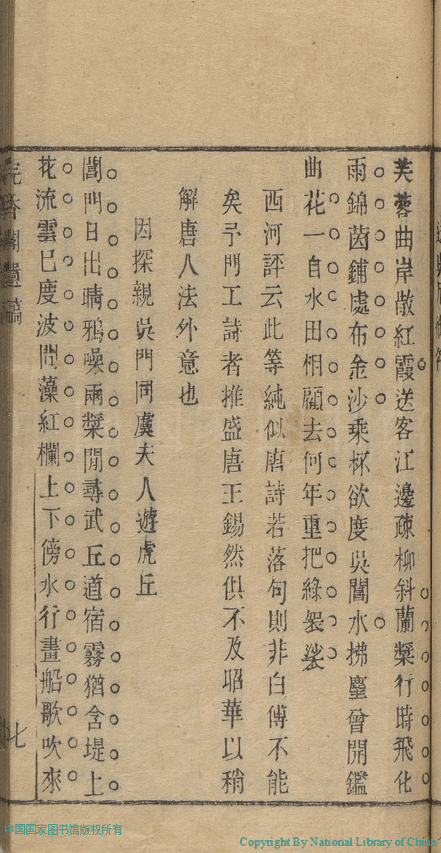 芙蓉曲岸散紅霞送客江邊疎柳斜蘭槳行時飛化
雨錦茵鋪處布金沙乘杯欲度吳閶水拂麈曾開鑑
曲花一自水田相顧去何年重把綠袈裟
西河評云此等純似唐詩若落句則非白傅不能
矣予門工詩者推盛唐王錫然俱不及昭華以稍
解唐人法外意也
因探親吳門同虞夫人遊虎丘
閶門日出晴鴉噪兩槳閒尋武丘道宿霧猶含堤上
花流雲已度波間藻紅欄上下傍水行畫船歌吹來
七
中国国家图书馆版权所有
Copyright By National Library of China